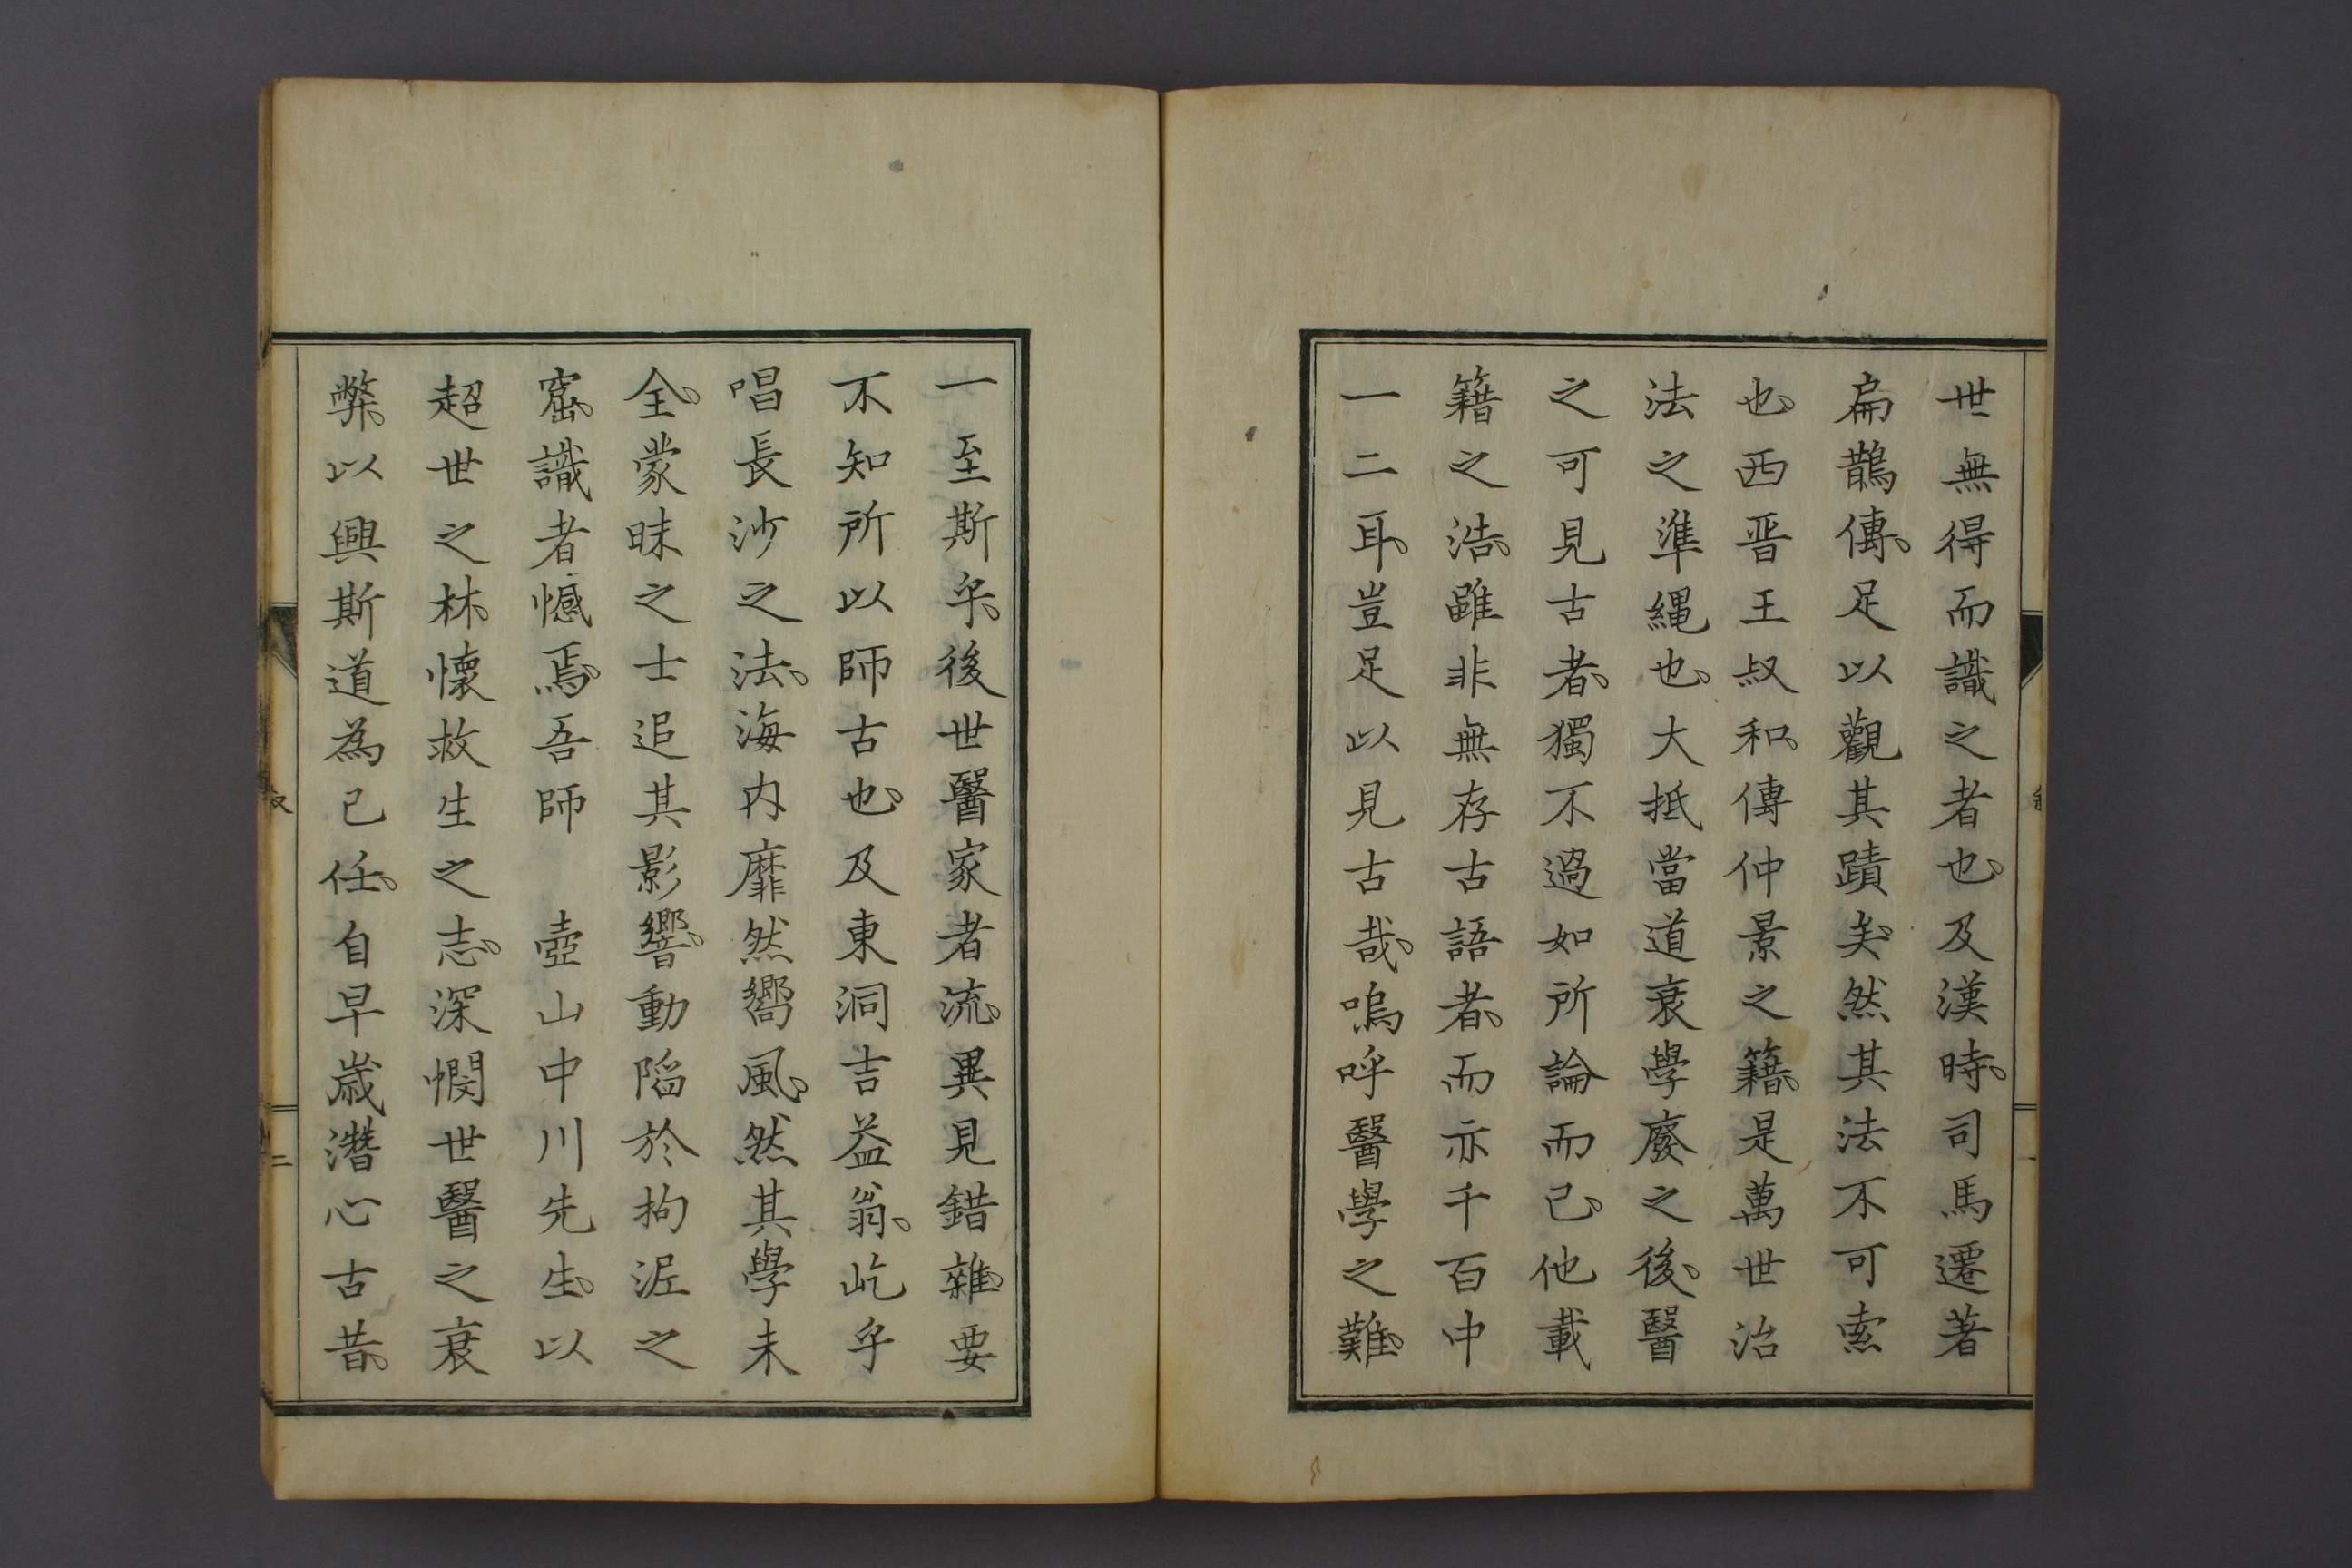 世無得而識之者也、及漢時、司馬遷著
扁鵲傳、足以觀其蹟矣、然其法不可索
也、西晋王叔和、傳仲景之籍、是萬世治
法之準縄也、大抵當道衰學廢之後、醫
之可見古者、獨不過如所論而已、他載
籍之浩、雖非無存古語者、而亦千百中
一二耳、豈足以見古哉、嗚呼醫學之難、
一至斯乎、後世醫家者流、異見錯雜、要
不知所以師古也、及東洞吉益翁、屹乎
唱長沙之法、海内靡然嚮風、然其學未
全、蒙昧之士追其影響、動陷於拘泥之
窟、識者憾焉、吾師　壺山中川先生、以
超世之材、懷救生之志、深憫世醫之衰
弊、以興斯道為己任、自早歳潛心古昔、
二